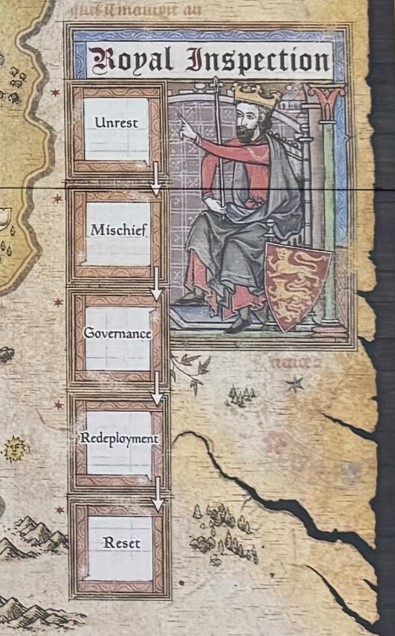 Royal Inspection
Unrest
Mischief
Governance
Redeployment
Reset